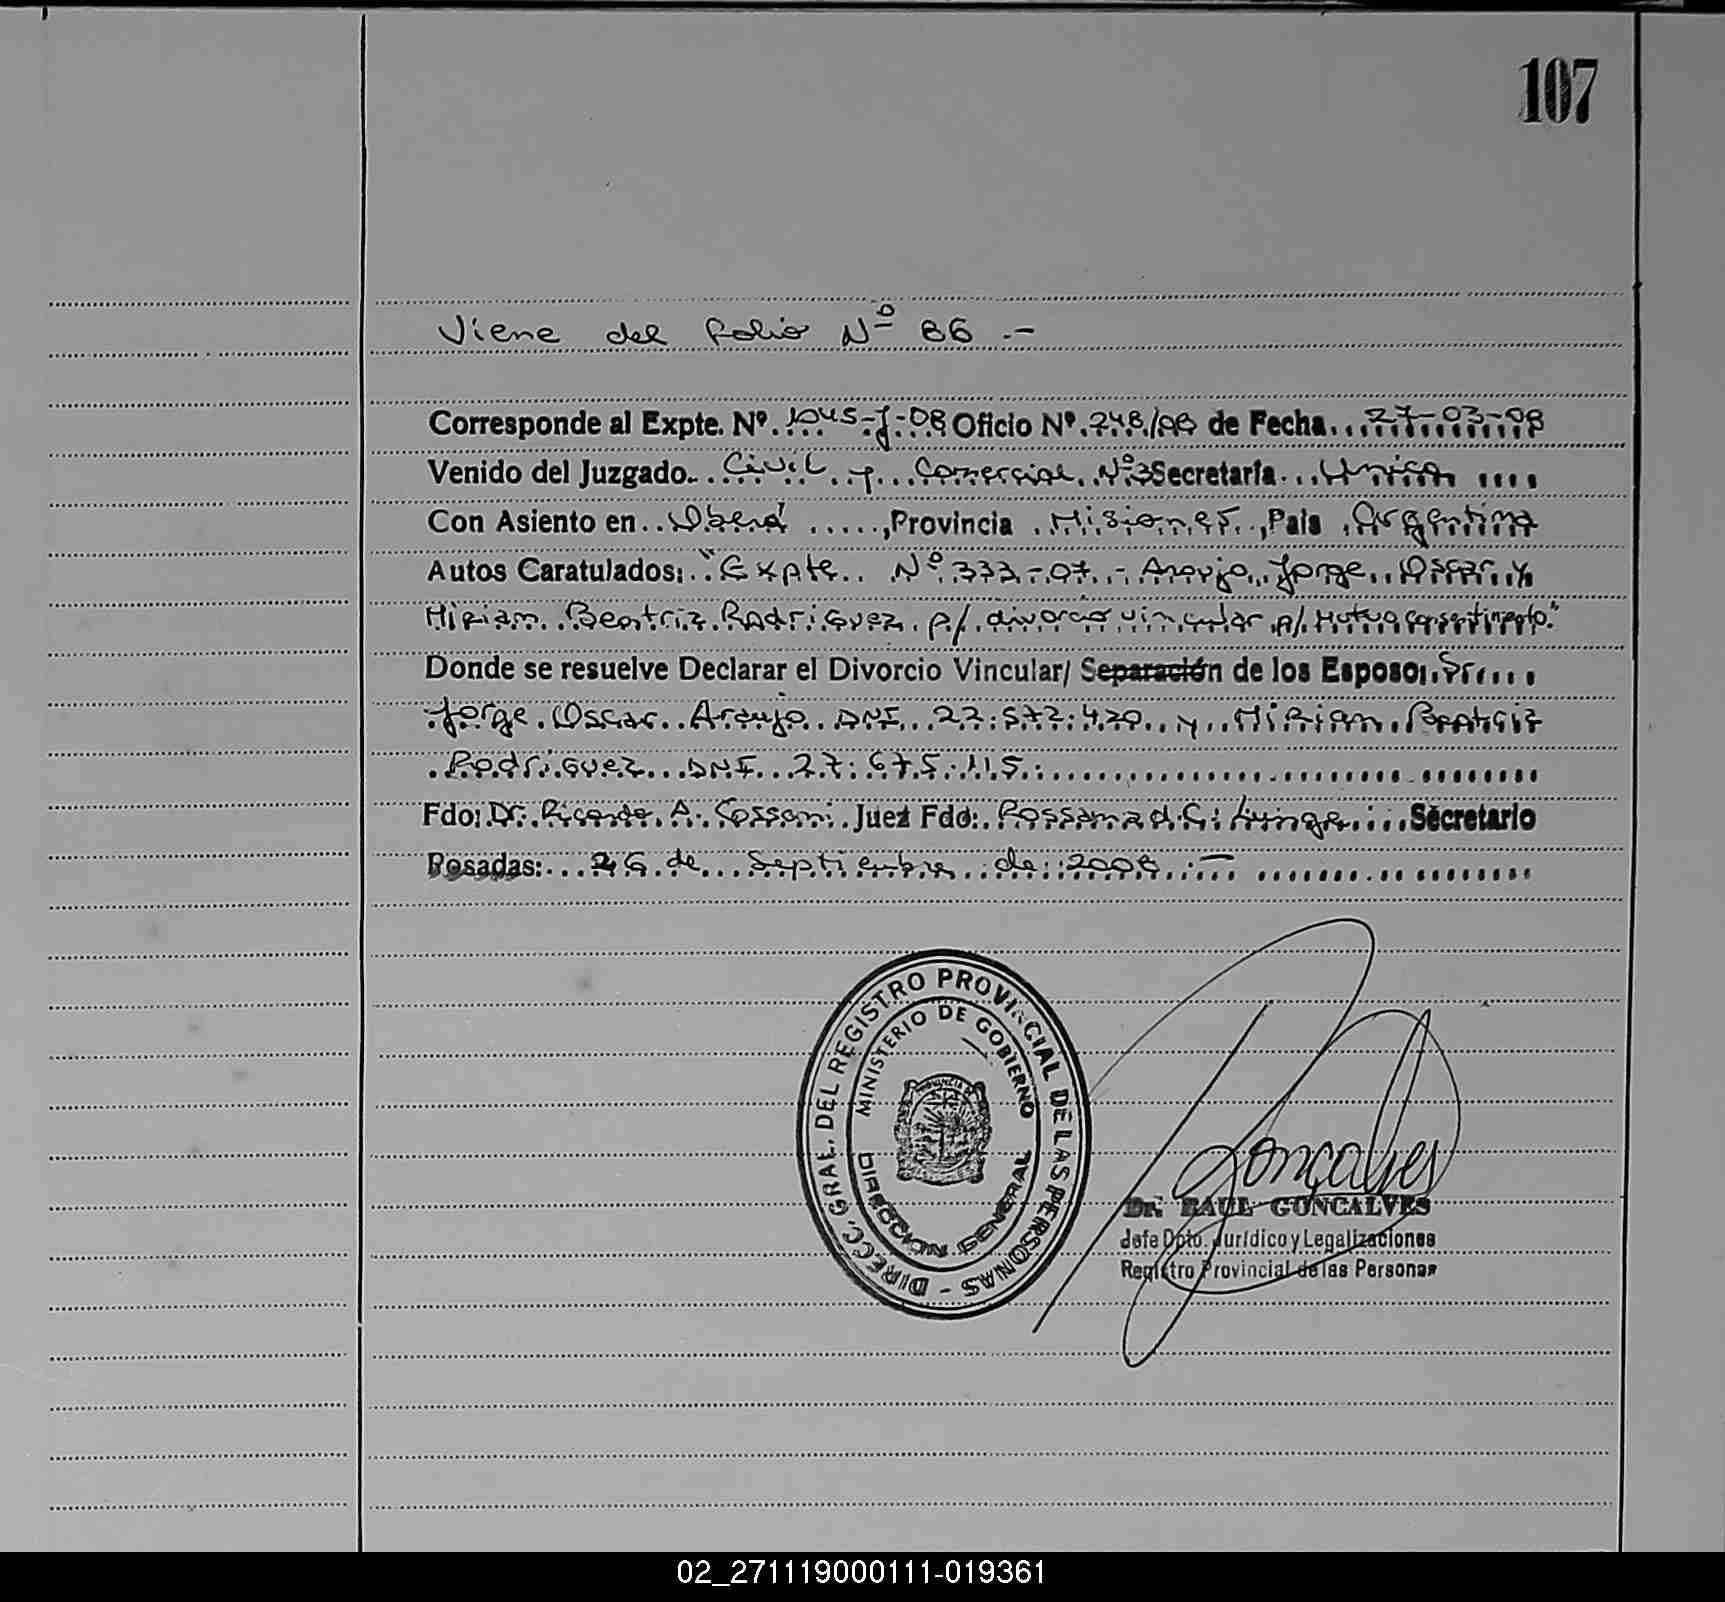 107
Viene del folio Nº 86.-
Corresponde al Expte. Nº. 1045-J-08 Oficio Nº. 248/08 de Fecha 27-03-08
Venido del Juzgado. Civil y Comercial Nº3 Secretaría Unica
Con Asiento en Oberá, Provincia Misiones, País Argentina
Autos Caratulados: "Expte Nº 333-07.- Araujo Jorge Oscar y
Miriam Beatriz Rodriguez p/ divorcio vincular p/ Mutuo consentimiento."
Donde se resuelve Declarar el Divorcio Vincular/ Separación de los Esposo: Sr
Jorge Oscar Araujo DNI 22.572.420 y Miriam Beatriz
Rodriguez DNI 27.675.115.
Fdo: Dr. Ricardo A. Juez Fdo: Secretario
Posadas: 26 de Septiembre de 2008.-
DIRECC. GRAL. DEL REGISTRO PROVINCIAL DE LAS PERSONAS -
MINISTERIO DE GOBIERNO
DIRECCION GENERAL
Gonçalves
Dr. RAUL GONCALVES
Jefe Dpto. Jurídico y Legalizaciones
Registro Provincial de las Personas
02_271119000111-019361